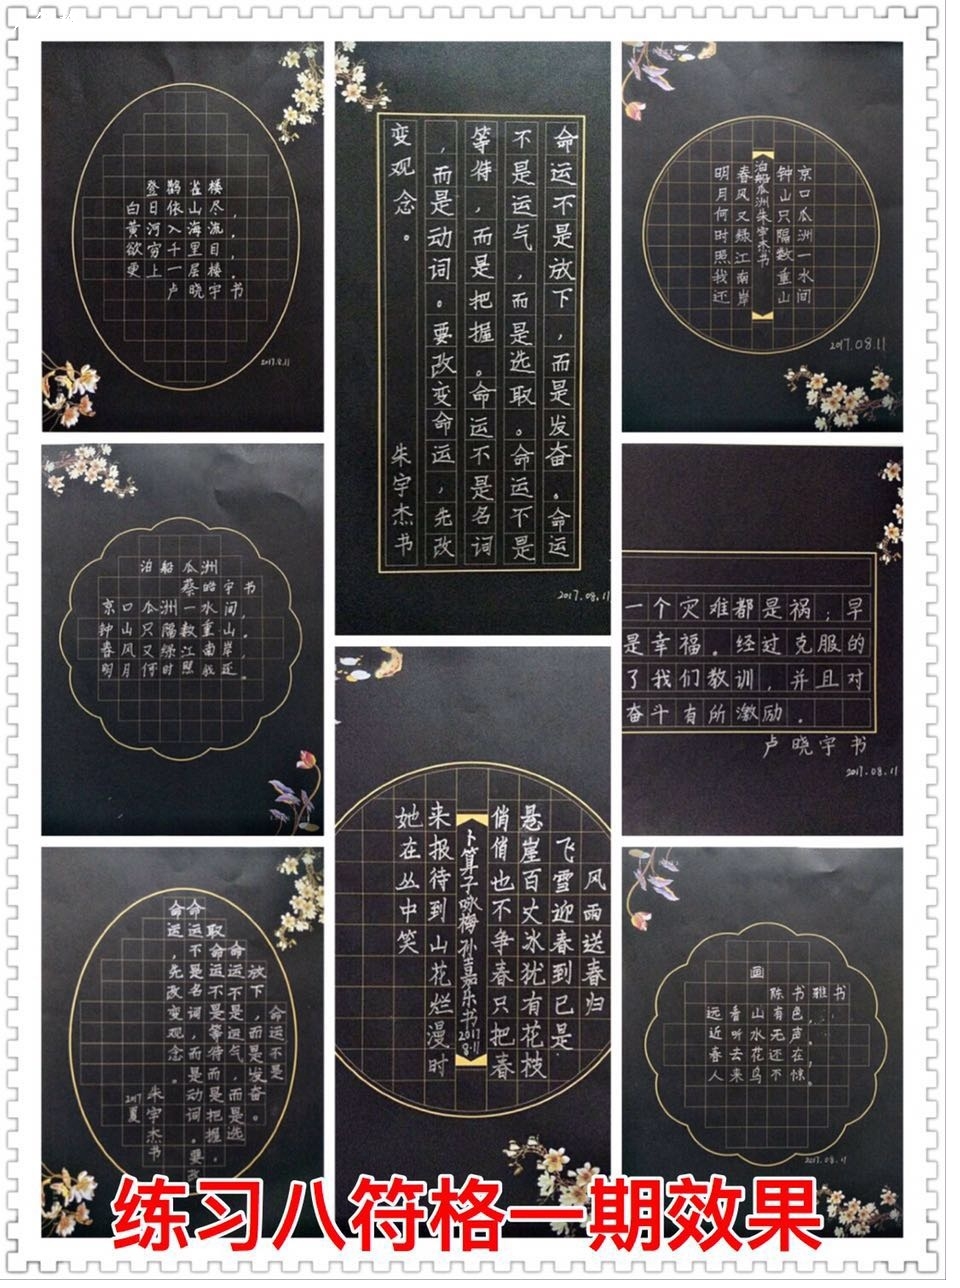 登鹳雀楼
白日依山尽，
黄河入海流，
欲穷千里目，
更上一层楼。
卢晓宇书
2017.8.11
命运不是放下，而是发奋。命运
不是运气，而是选取。命运不是
等待，而是把握。命运不是名词
，而是动词。要改变命运，先改
变观念。 朱宇杰书
2017.08.11
京口瓜洲一水间
钟山只隔数重山
泊船瓜洲朱宇杰书
春风又绿江南岸
明月何时照我还
2017.08.11
泊船瓜洲
蔡皓宇书
京口瓜洲一水间，
钟山只隔数重山。
春风又绿江南岸，
明月何时照我还。
一个灾难都是祸；早
是幸福。经过克服的
了我们教训，并且对
奋斗有所激励。
卢晓宇书
2017.08.11
命运不是
放下，而是发奋。
命运不是运气，而是选
取命运不是等待，而是把握。
命运不是名词，而是动词。要改
命运，先改变观念。
朱宇杰书
2017夏
风雨送春归
飞雪迎春到已是
悬崖百丈冰犹有花枝
俏俏也不争春只把春
卜算子咏梅孙嘉乐书2017 8·11
来报待到山花烂漫时
她在丛中笑
画
陈书雅书
远看山有色，
近听水无声。
春去花还在，
人来鸟不惊。
2017.08.11
练习八符格一期效果